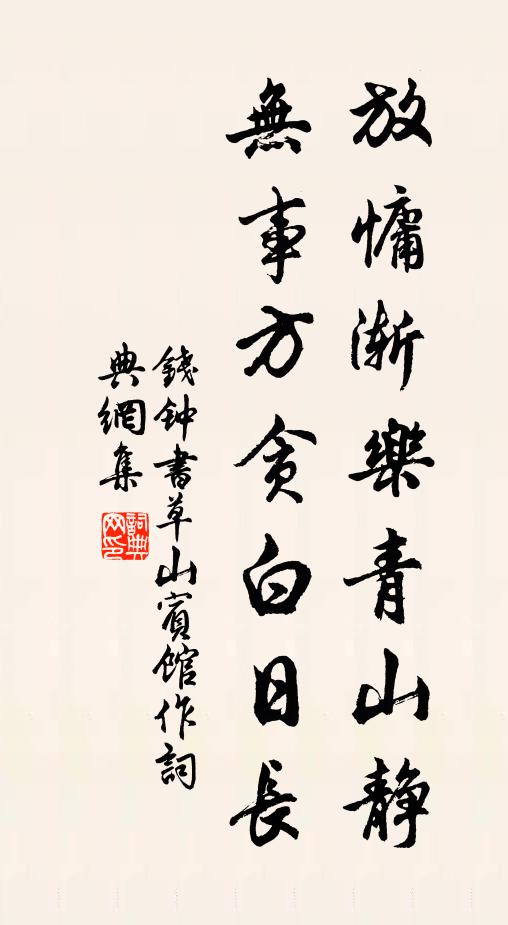 放慵漸樂青山靜
無事方貪白日長
錢鍾書草山賓館作詞
典網集
詞典
网印